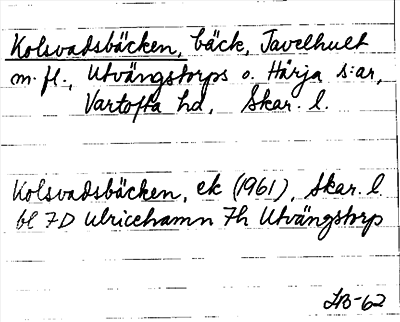 Kolsvadsbäcken, bäck, Tavelhult
m. fl., Utvängstorps o. Härja s:ar,
Vartofta hd, Skar. l.
Kolsvadsbäcken, ek (1961), Skar. l
bl 7D Ulricehamn 7h Utvängstorp
LB-62